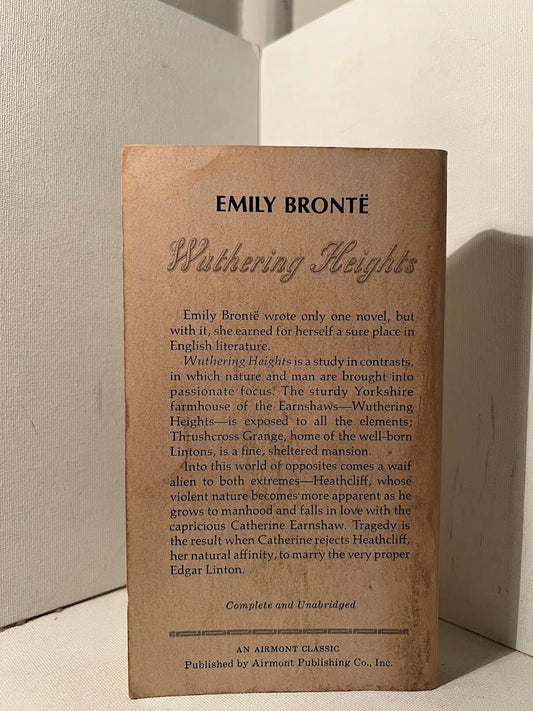 EMILY BRONTË
Wuthering Heights
Emily Brontë wrote only one novel, but
with it, she earned for herself a sure place in
English literature.
Wuthering Heights is a study in contrasts,
in which nature and man are brought into
passionate focus. The sturdy Yorkshire
farmhouse of the Earnshaws—Wuthering
Heights—is exposed to all the elements;
Thrushcross Grange, home of the well-born
Lintons, is a fine, sheltered mansion.
Into this world of opposites comes a waif
alien to both extremes—Heathcliff, whose
violent nature becomes more apparent as he
grows to manhood and falls in love with the
capricious Catherine Earnshaw. Tragedy is
the result when Catherine rejects Heathcliff,
her natural affinity, to marry the very proper
Edgar Linton.
Complete and Unabridged
AN AIRMONT CLASSIC
Published by Airmont Publishing Co., Inc.